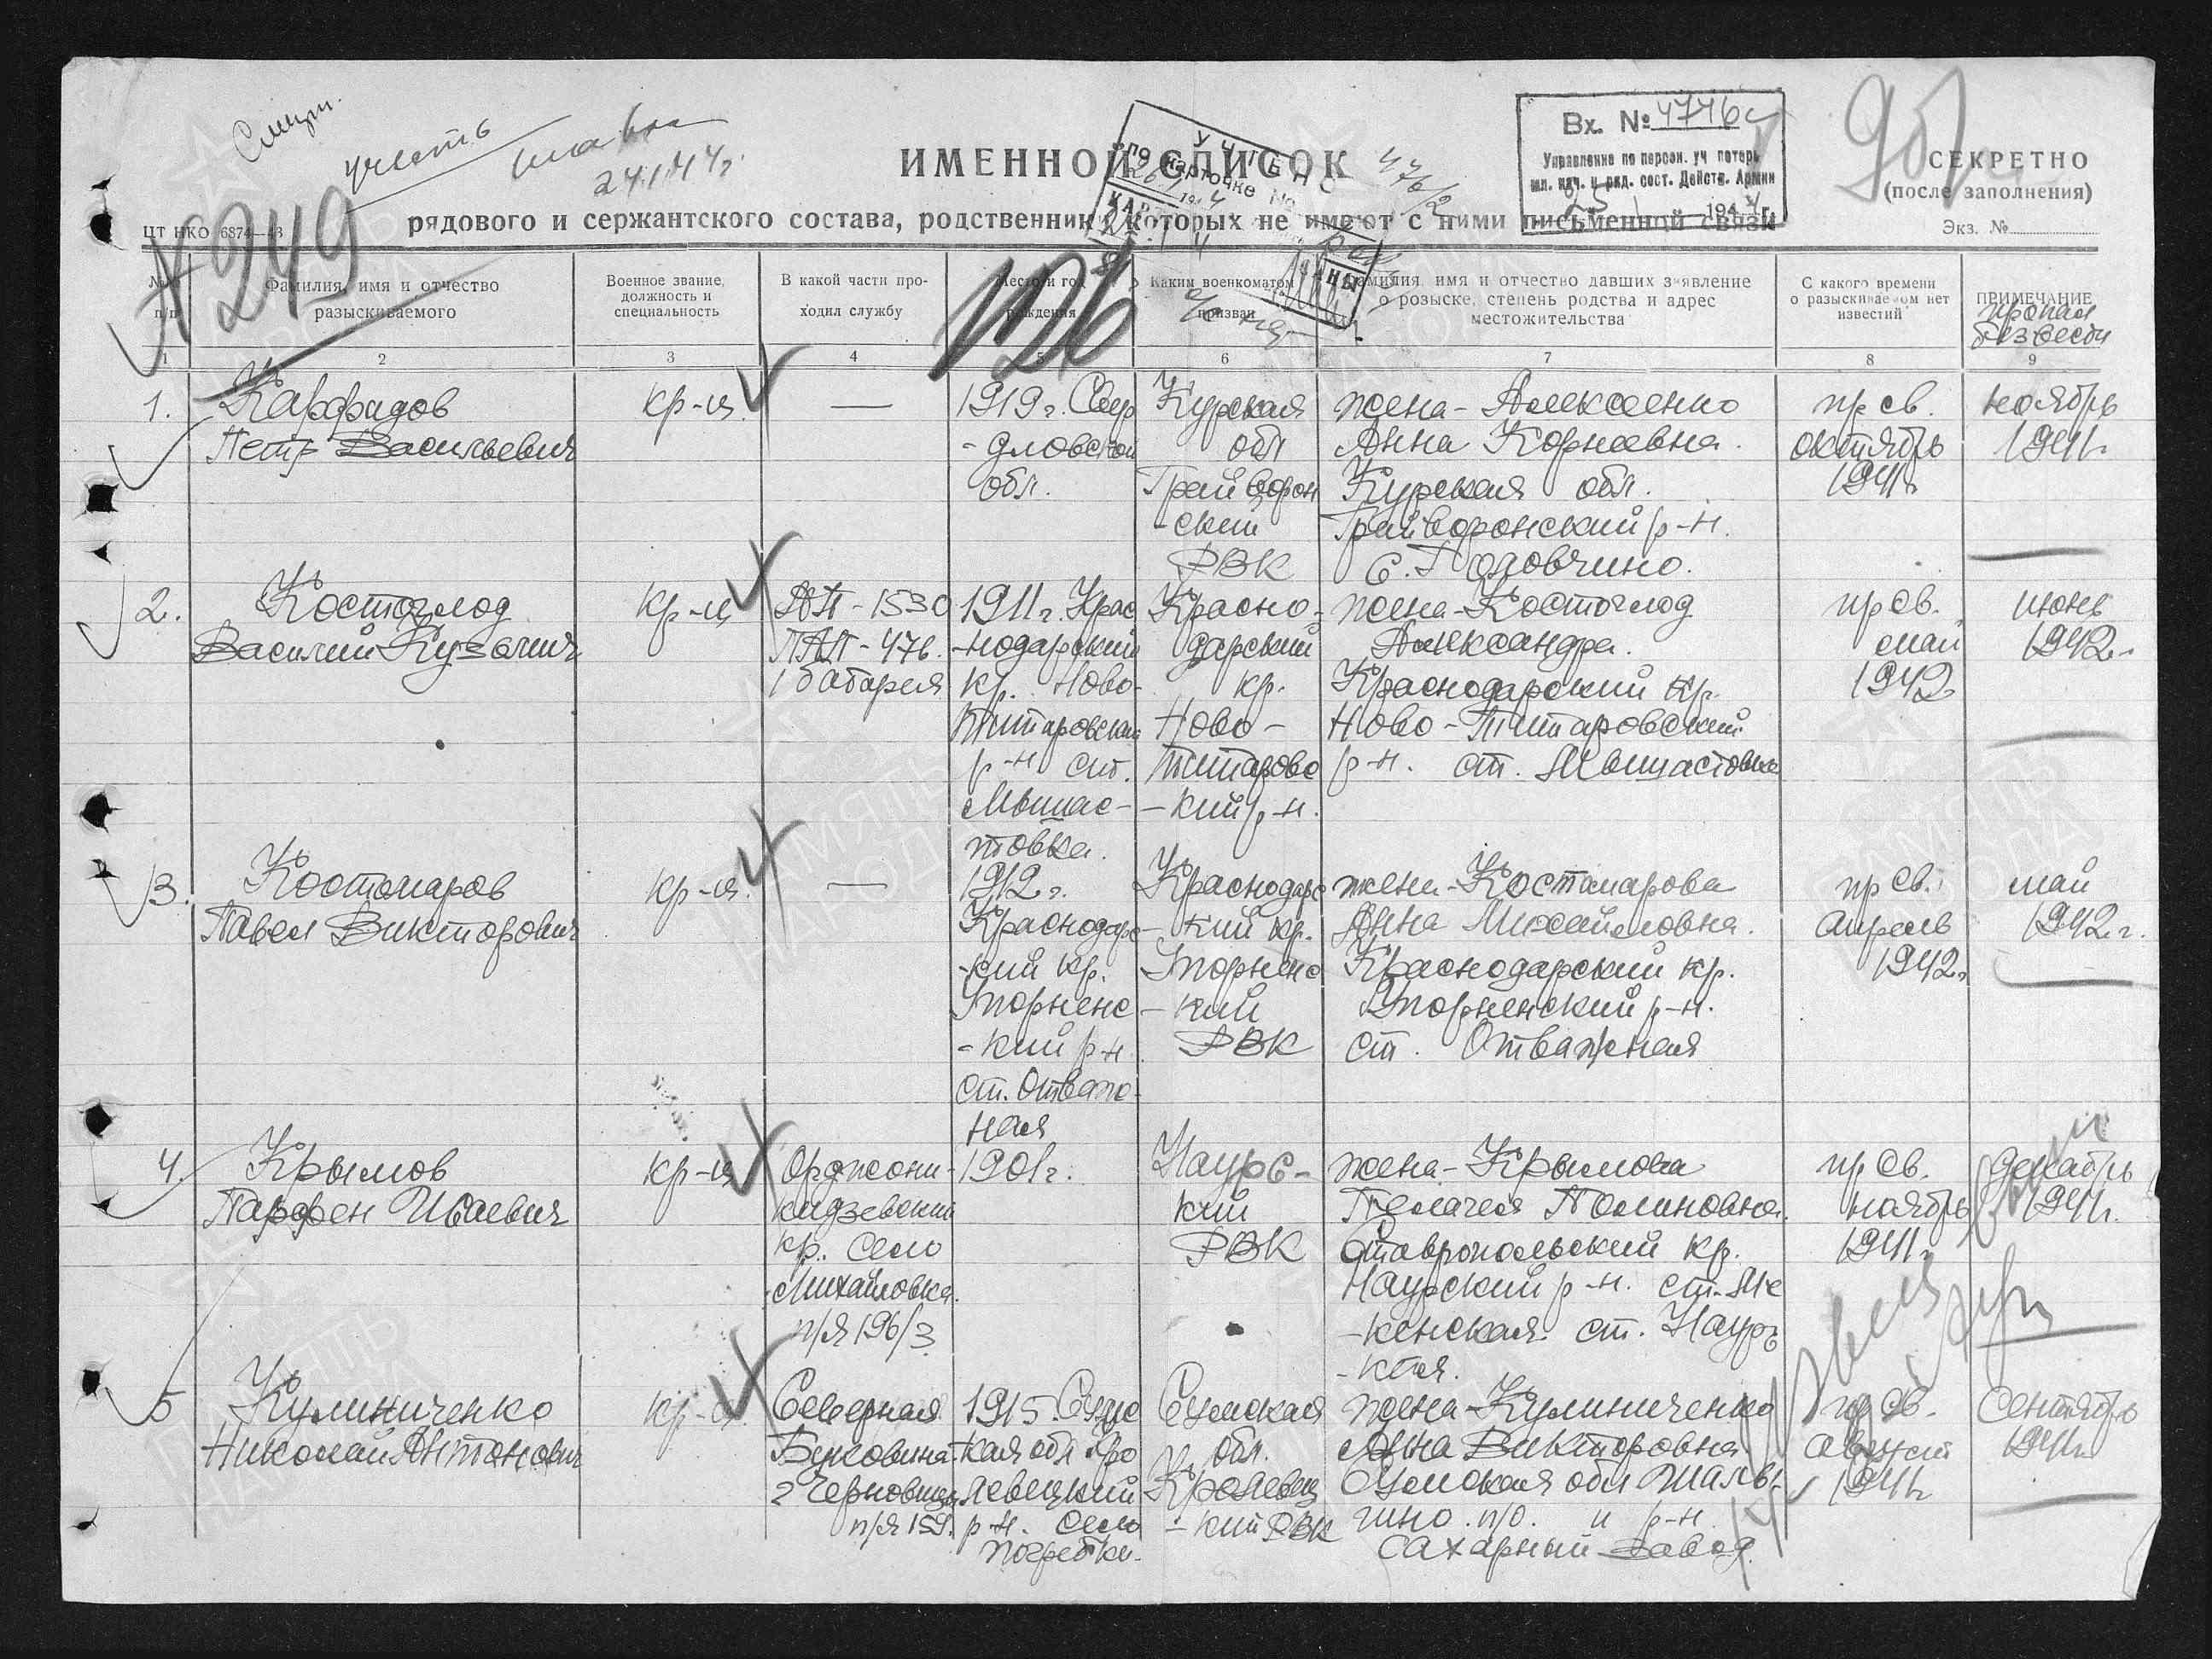 Вх. № 4746с
Управление по персон. уч потерь
мл. нач. и ряд. сост. Действ. Армии
25 1944 г.
СЕКРЕТНО
(после заполнения)
Экз. №
УЧТЕНО
по карточке №
ИМЕННОЙ СПИСОК
рядового и сержантского состава, родственники которых не имеют с ними письменной связи
ЦТ НКО 6874—43
249
№№ п/п
Фамилия, имя и отчество
разыскиваемого
Военное звание,
должность и
специальность
В какой части про-
ходил службу
Место и год
рождения
Каким военкоматом
призван
Фамилия, имя и отчество давших заявление
о розыске, степень родства и адрес
местожительства
С какого времени
о разыскиваемом нет
известий
ПРИМЕЧАНИЕ
пропал
без вести
1 2 3 4 5 6 7 8 9
1.
Карфидов
Петр Васильевич
кр-ц.
—
1919 г. Свер
-дловской
обл.
Курская
обл
Грайворон
-ский
РВК
жена - Алексеенко
Анна Корнеевна.
Курская обл.
Грайворонский р-н.
с. Головчино.
пр св.
октябрь
1941 г.
ноябрь
1941 г.
2.
Костоглод
Василий Кузьмич
кр-ц
ПП - 1530
ПАП - 476.
1 батарея
1911 г. Крас
-нодарский
кр. Ново-
Титаровский
р-н ст.
Мышас-
товка.
Красно-
дарский
кр.
Ново-
Титаровс
-кий р-н.
жена - Костоглод
Александра.
Краснодарский кр.
Ново-Титаровский
р-н. ст. Мышастовка
пр св.
май
1942
июнь
1942 г.
3.
Костомаров
Павел Викторович
кр-ц.
—
1912 г.
Краснодарс
-кий кр.
Упорненс
-кий р-н
ст. Отваж-
ная
Краснодарс
-кий кр.
Упорненс
-кий
РВК
жена - Костомарова
Анна Михайловна.
Краснодарский кр.
Упорненский р-н.
ст. Отважная
пр св.
Апрель
1942 г.
май
1942 г.
4.
Крымов
Парфен Исаевич
кр-ц
Орджони-
кидзевский
кр. село
Михайловка.
п/я 196/3
1901 г.
Наурс-
кий
РВК
жена - Крымова
Пелагея
Ставропольский кр.
Наурский р-н. ст. Ме
-кенская. ст. Наурс
-кая.
пр св.
ноябрь
1941 г.
декабрь
1941 г.
5
Кулиниченко
Николай Антонович
кр-ц.
Северная
Буковина
г Черновицы
п/я 159.
1915. Сумс
кая обл. Кро
левецкий
р-н. село
Погребки.
Сумская
обл.
Кролевец
-кий РВК
жена - Кулиниченко
Анна Викторовна
Сумская обл Шалы-
гино. п/о. и р-н.
Сахарный завод.
пр св.
август
1941 г.
сентябрь
1941 г.